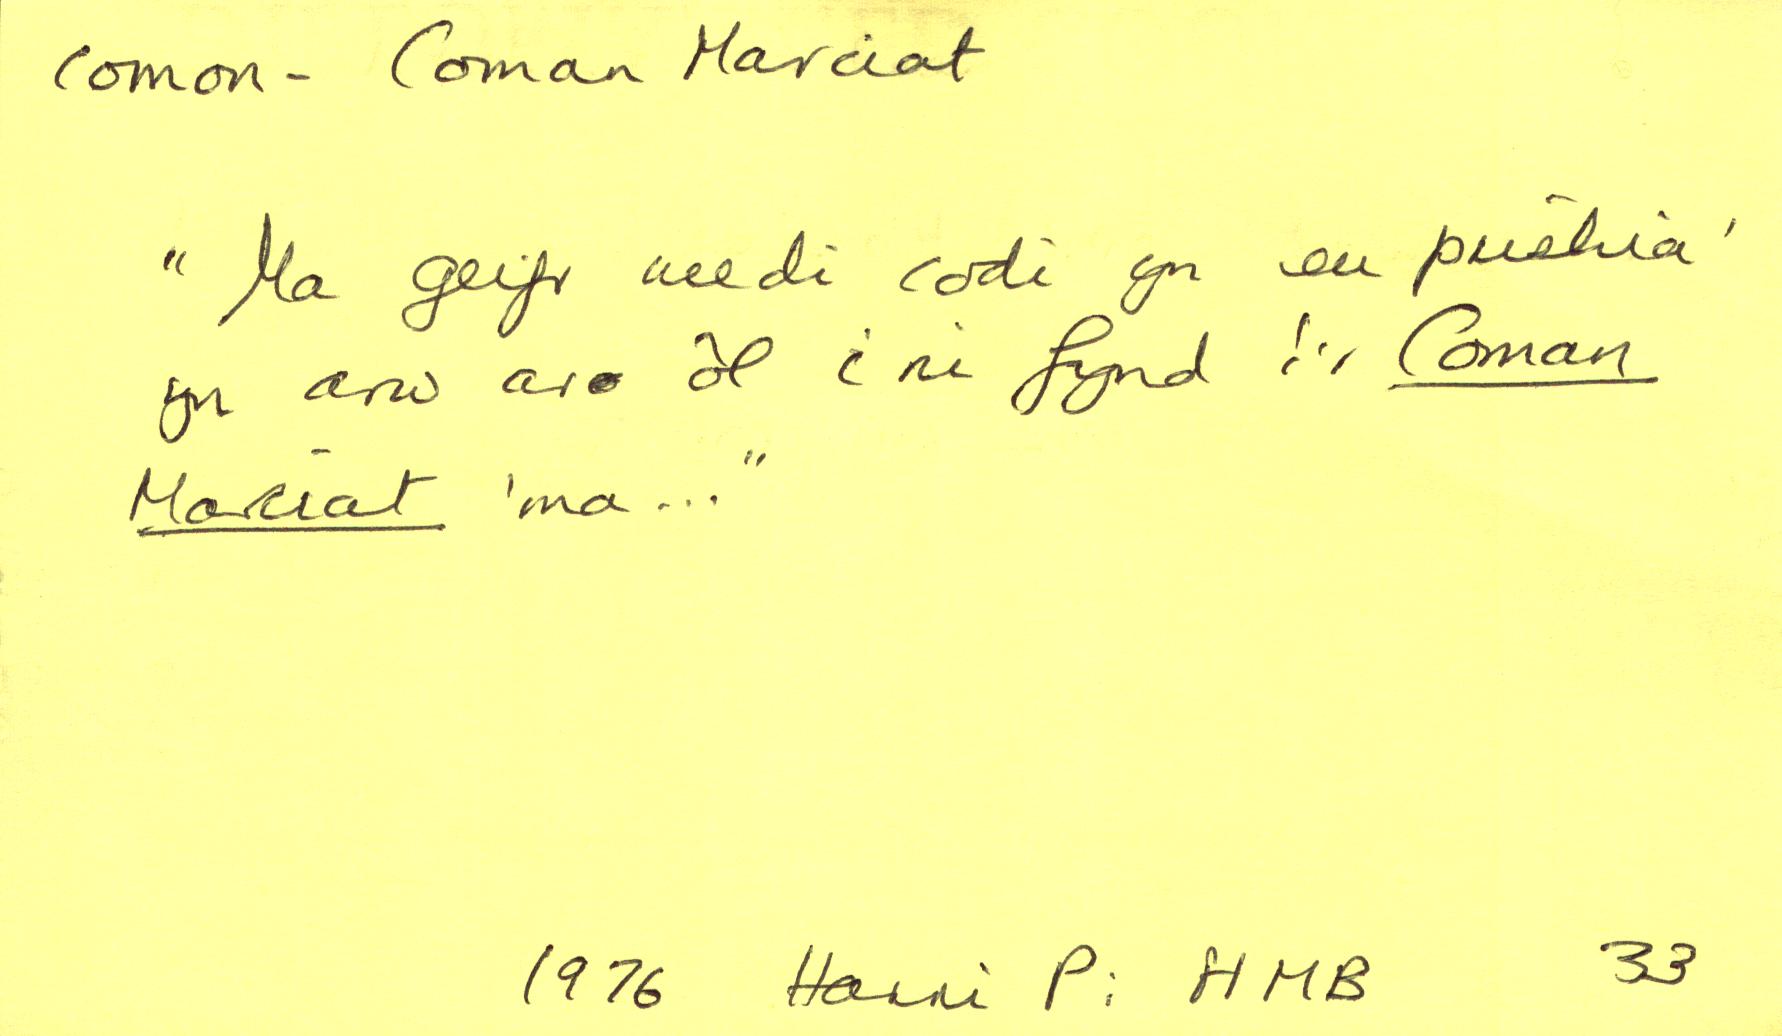 comon - Coman Marciat
"Ma geifr wedi codi yn eu prishia'
yn arw ar ôl i ni fynd i'r Coman
Marciat 'ma..."
1976 Harri P: HMB 33